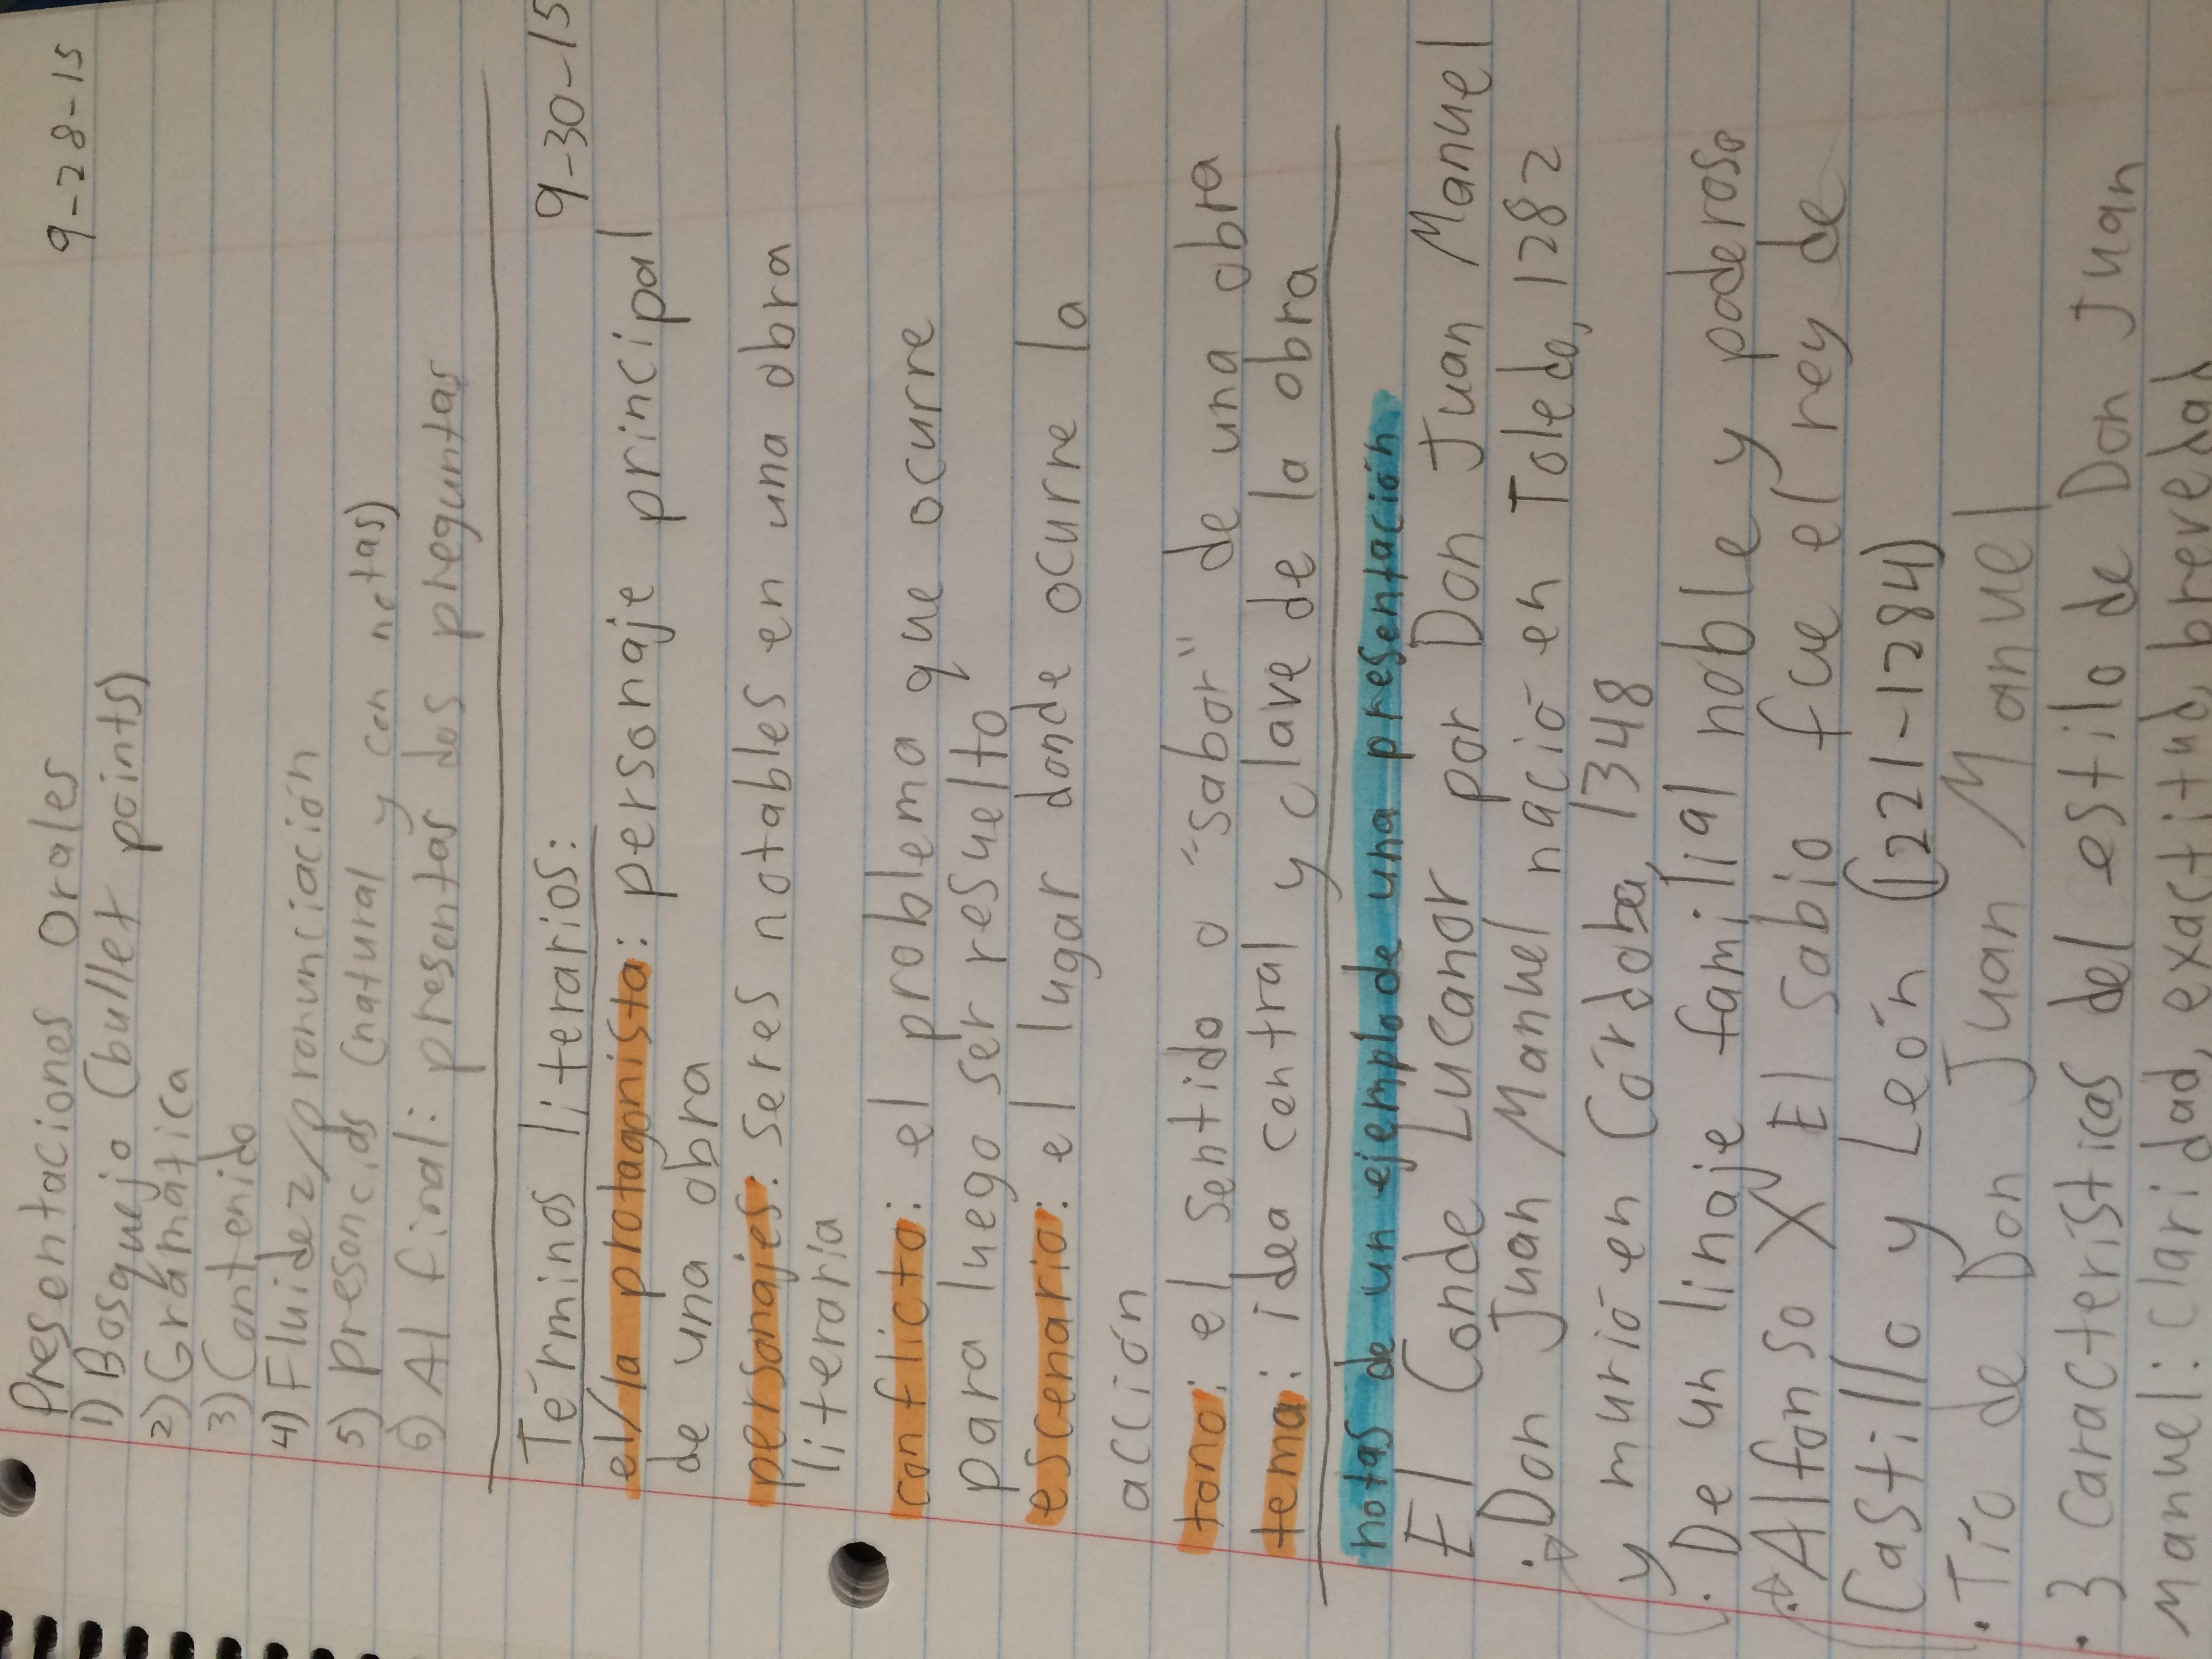 Presentaciones Orales 9-28-15
1) Bosquejo (bullet points)
2) Gramática
3) Contenido
4) Fluidez/pronunciación
5) presencias (natural y con notas)
6) Al final: presentar dos preguntas
Términos literarios: 9-30-15
el/la protagonista: personaje principal
de una obra
personajes: seres notables en una obra
literaria
conflicto: el problema que ocurre
para luego ser resuelto
escenario: el lugar donde ocurre la
acción
tono: el sentido o "sabor" de una obra
tema: idea central y clave de la obra
notas de un ejemplo de una presentación
El Conde Lucanor por Don Juan Manuel
• Don Juan Manuel nació en Toledo, 1282
y murió en Córdoba, 1348
• De un linaje familial noble y poderoso
• Alfonso X El Sabio fue el rey de
Castillo y León (1221-1284)
• Tío de Don Juan Manuel
• 3 características del estilo de Don Juan
Manuel: claridad, exactitud, brevedad